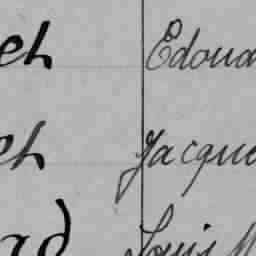 eh Edoua
eh Jacque
rd Louis M